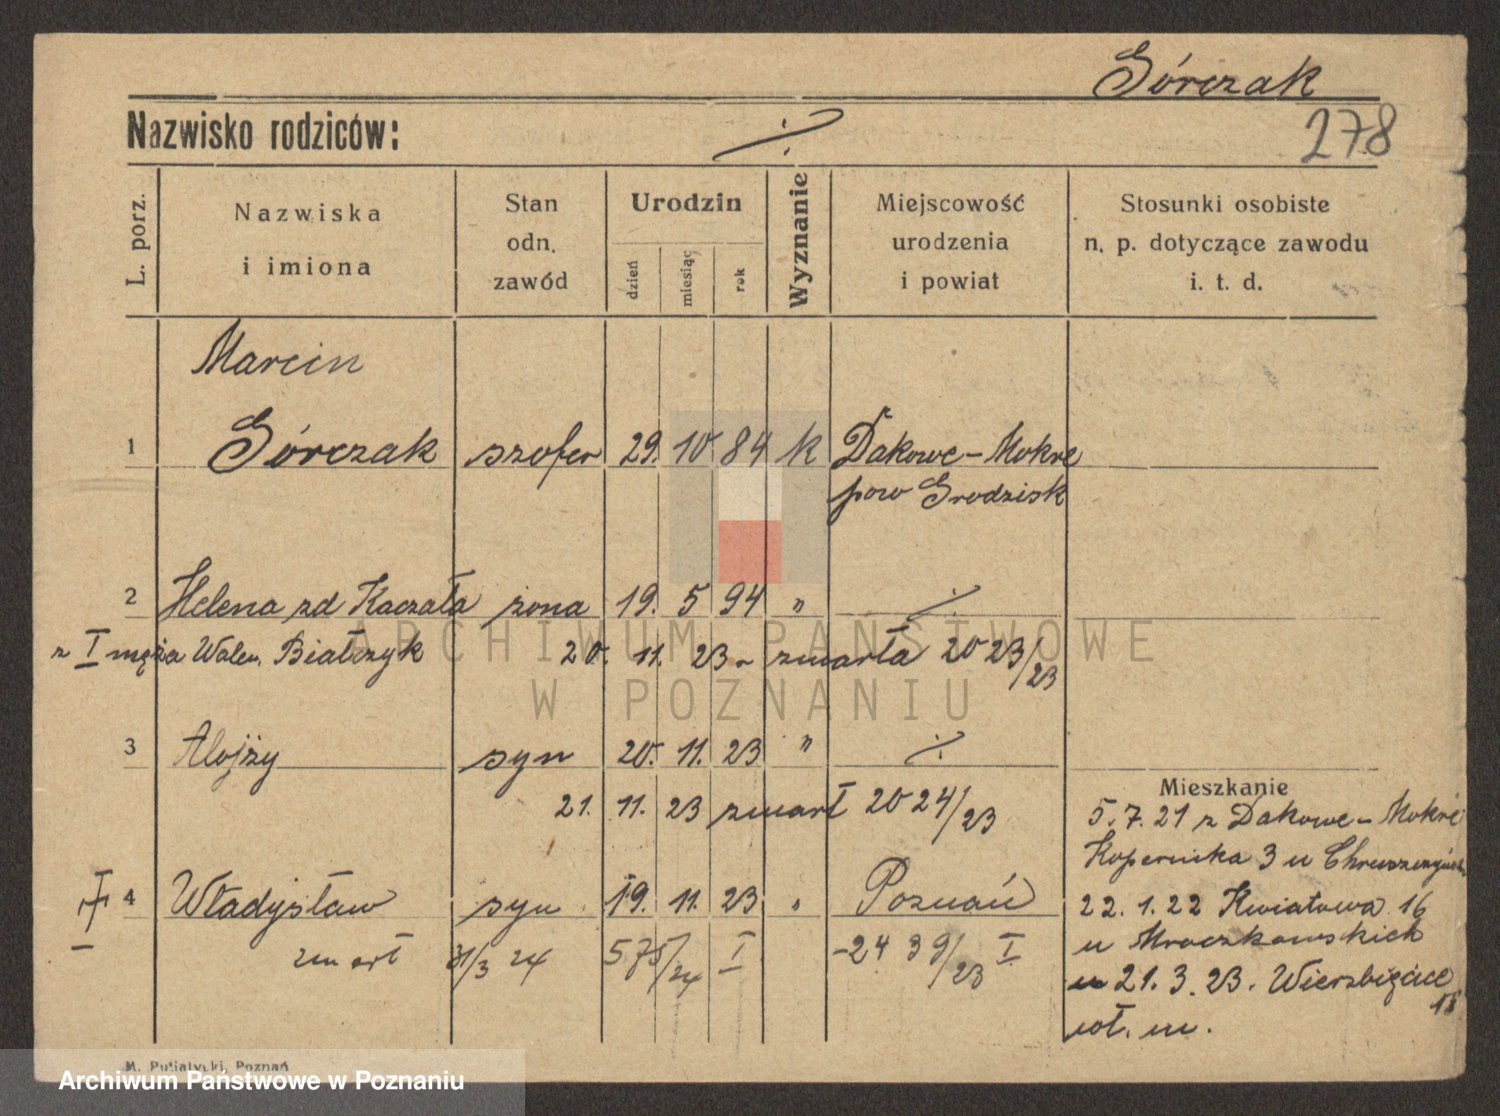 Górczak
Nazwisko rodziców: ·/·
278
L. porz.
Nazwiska
i imiona
Stan
odn.
zawód
Urodzin
dzień
miesiąc
rok
Wyznanie
Miejscowość
urodzenia
i powiat
Stosunki osobiste
n. p. dotyczące zawodu
i. t. d.
Marcin
1 Górczak szofer 29. 10 84 k Dakowe-Mokre
pow Grodzisk
2 Helena zd Kaczała żona 19. 5 94 " ·/·
z I męża Walen. Białczyk 20. 11. 23 - zmarła 2023/23
3 Alojzy syn 20. 11. 23 " ·/·
21. 11. 23 zmarł 2024/23
4 Władysław syn 19. 11. 23 " Poznań
zmarł 31/3 24 575/24 I -2439/23 I
Mieszkanie
5.7.21 z Dakowe-Mokre
Kopernika 3 u
22.1.22 Kwiatowa 16
u Mroczkowskich
21.3.23. Wierzbięcice 18
wł. m.
M. Putiatycki, Poznań
ARCHIWUM PAŃSTWOWE
W POZNANIU
Archiwum Państwowe w Poznaniu